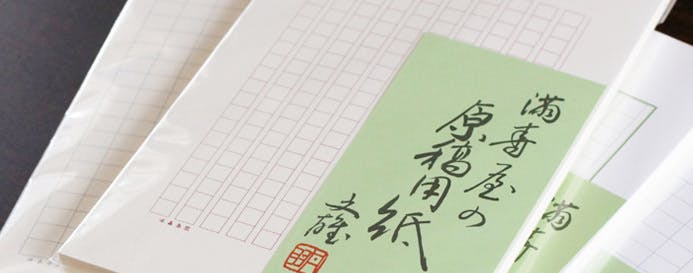 満寿屋の
原稿用紙
文雄
満寿